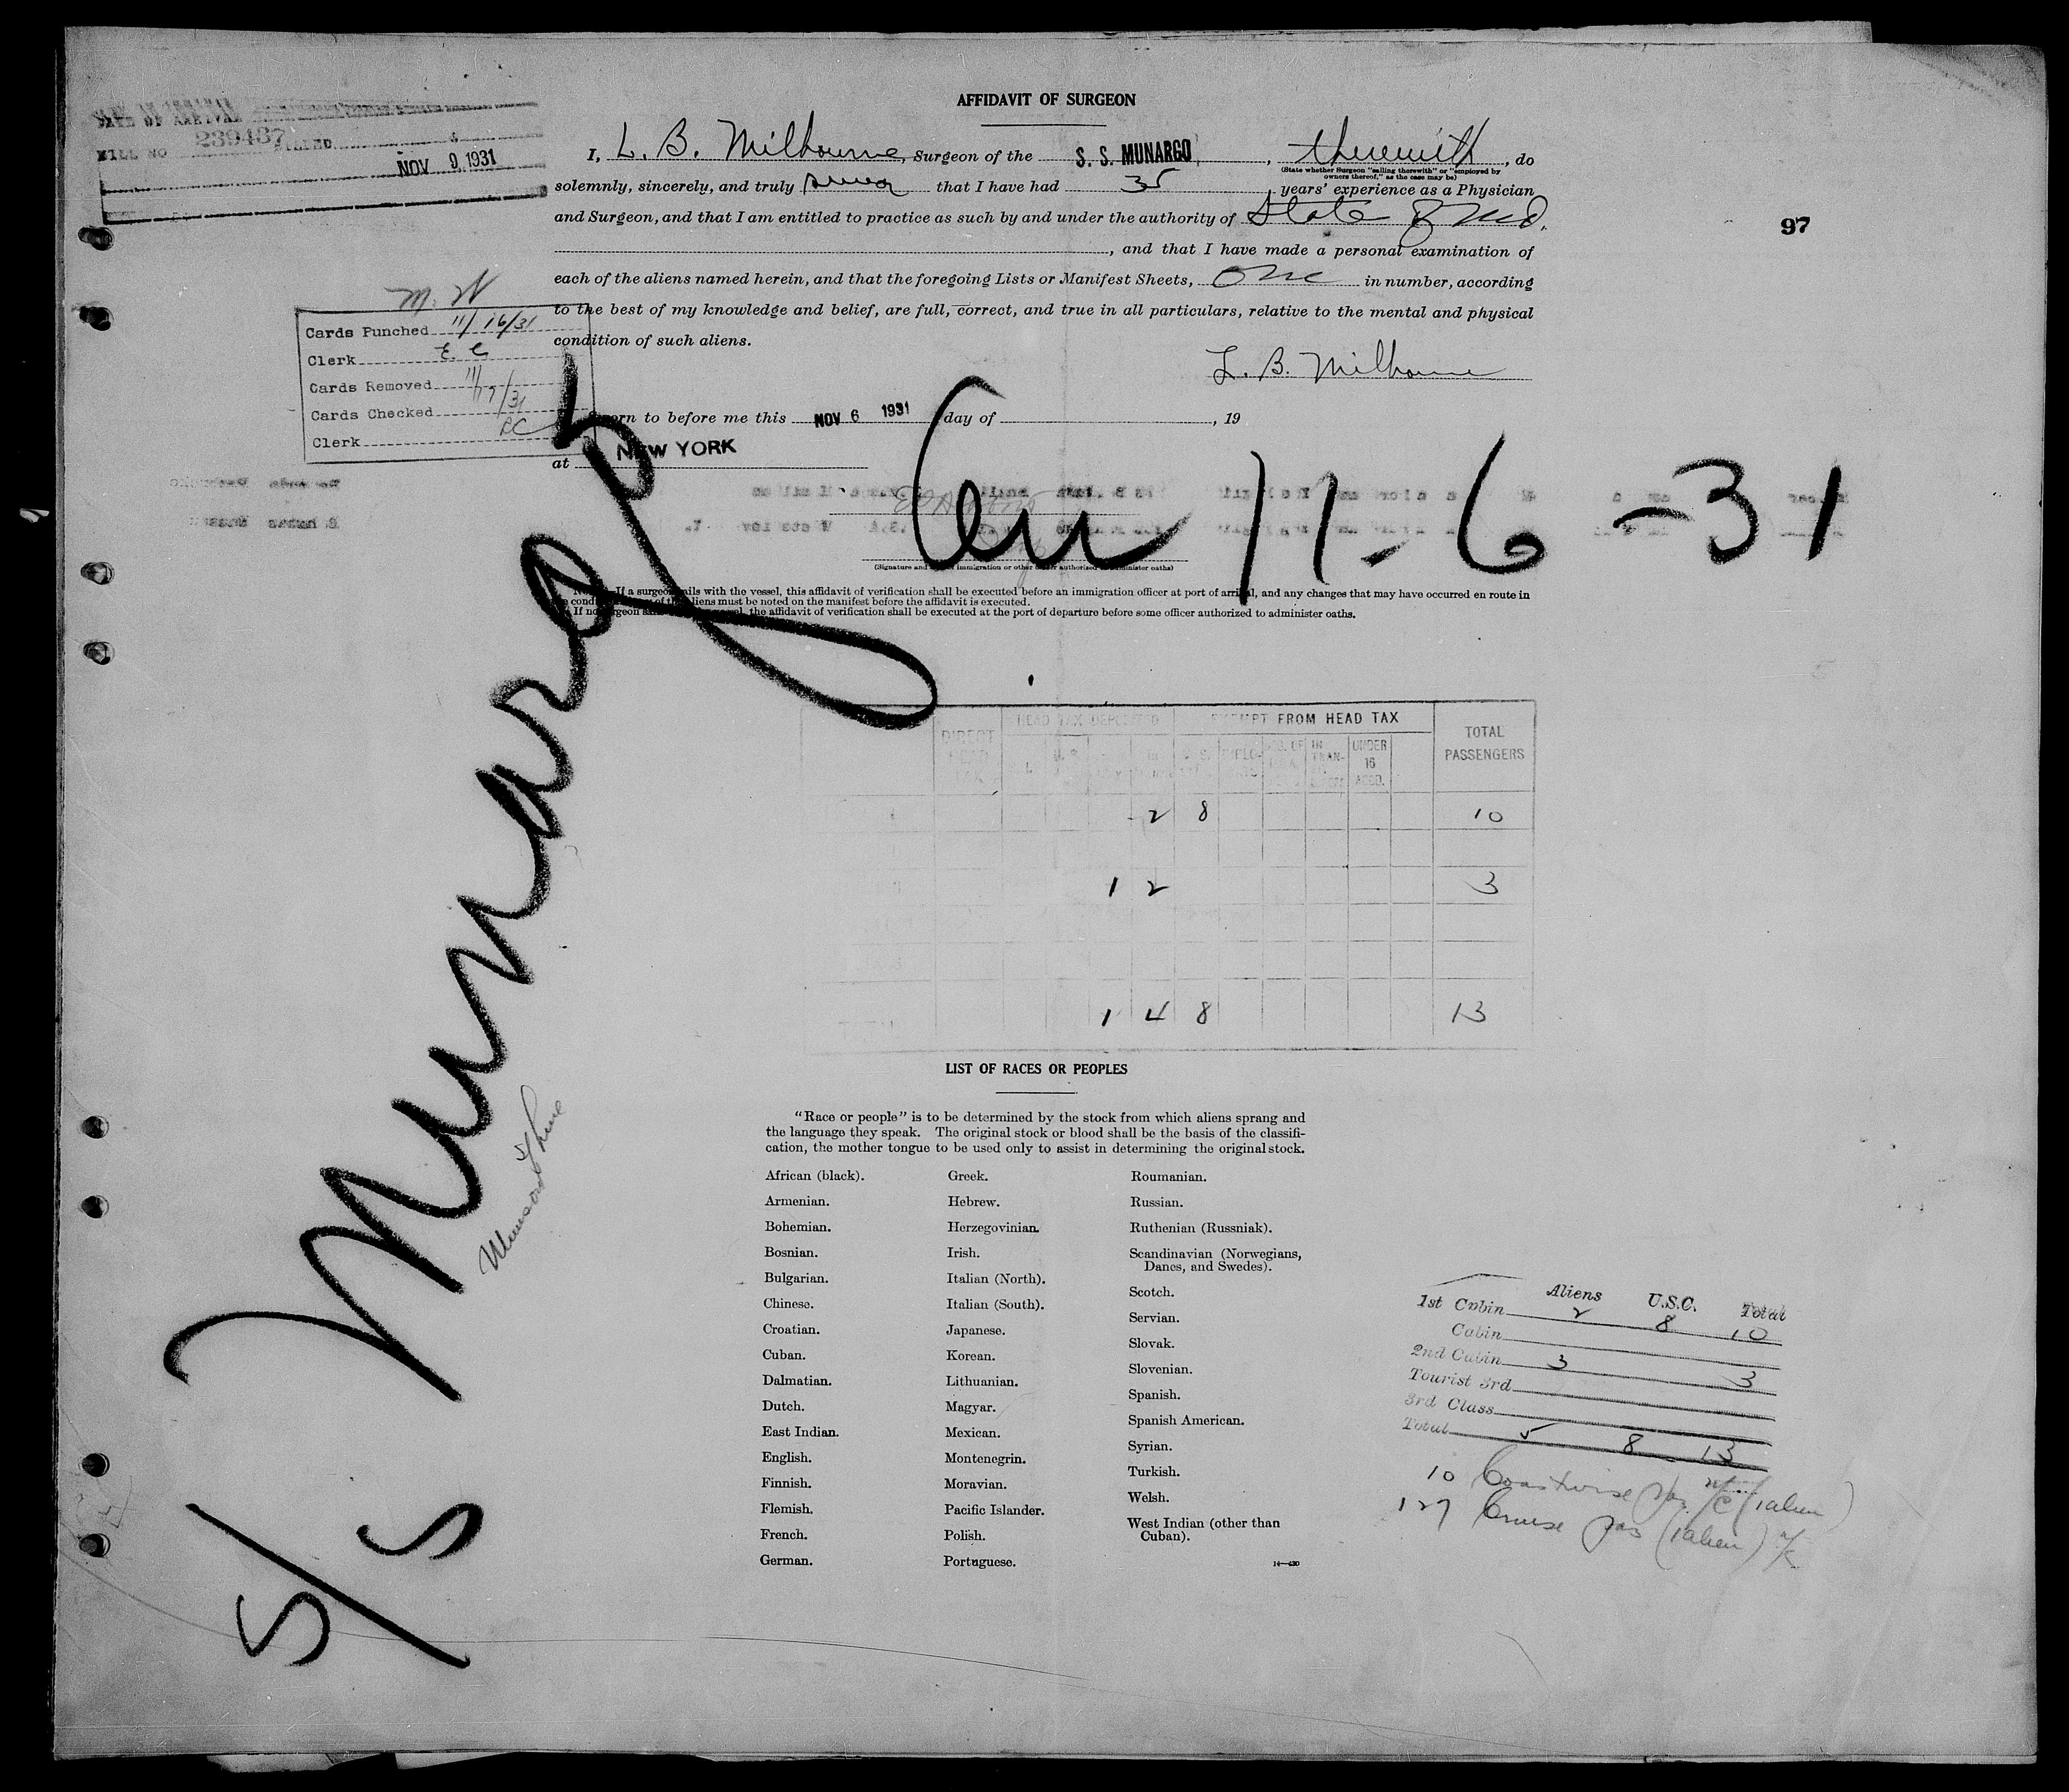 AFFIDAVIT OF SURGEON
I, L. B. Milbourne, Surgeon of the S. S. MUNARGO, therewith, do
(State whether Surgeon "sailing therewith" or "employed by owners thereof," as the case may be)
solemnly, sincerely, and truly swear that I have had 35 years' experience as a Physician
and Surgeon, and that I am entitled to practice as such by and under the authority of State of Md.
, and that I have made a personal examination of
each of the aliens named herein, and that the foregoing Lists or Manifest Sheets, one in number, according
to the best of my knowledge and belief, are full, correct, and true in all particulars, relative to the mental and physical
condition of such aliens.
L. B. Milbourne
239437
NOV 9 1931
97
M. W
Cards Punched 11/16/31
Clerk E. C
Cards Removed 11/17/31
Cards Checked
Clerk
Sworn to before me this NOV 6 1931 day of , 19
at NEW YORK
(Signature and immigration or other officer authorized to administer oaths)
11-6-31
If a surgeon sails with the vessel, this affidavit of verification shall be executed before an immigration officer at port of arrival, and any changes that may have occurred en route in
condition of the aliens must be noted on the manifest before the affidavit is executed.
If no surgeon the affidavit of verification shall be executed at the port of departure before some officer authorized to administer oaths.
S/S Munargo
Munson Line
DIRECT HEAD TAX DEPOSITED EXEMPT FROM HEAD TAX TOTAL PASSENGERS
IN TRAN- UNDER 16 ACCD.
2 8 10
1 2 3
1 4 8 13
LIST OF RACES OR PEOPLES
"Race or people" is to be determined by the stock from which aliens sprang and
the language they speak. The original stock or blood shall be the basis of the classifi-
cation, the mother tongue to be used only to assist in determining the original stock.
African (black).
Armenian.
Bohemian.
Bosnian.
Bulgarian.
Chinese.
Croatian.
Cuban.
Dalmatian.
Dutch.
East Indian.
English.
Finnish.
Flemish.
French.
German.
Greek.
Hebrew.
Herzegovinian.
Irish.
Italian (North).
Italian (South).
Japanese.
Korean.
Lithuanian.
Magyar.
Mexican.
Montenegrin.
Moravian.
Pacific Islander.
Polish.
Portuguese.
Roumanian.
Russian.
Ruthenian (Russniak).
Scandinavian (Norwegians,
Danes, and Swedes).
Scotch.
Servian.
Slovak.
Slovenian.
Spanish.
Spanish American.
Syrian.
Turkish.
Welsh.
West Indian (other than
Cuban).
14—430
Aliens U.S.C. Total
1st Cabin 2 8 10
Cabin
2nd Cabin 3 3
Tourist 3rd
3rd Class
Total 5 8 13
10 Coastwise pas (1 alien)
127 Cruise pas (1 alien)